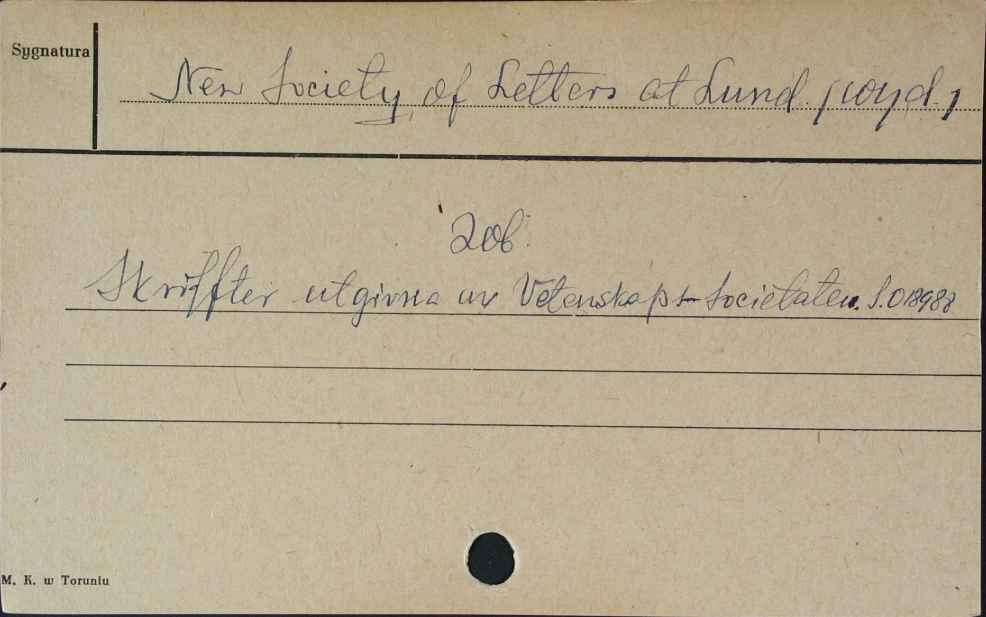 Sygnatura
New Society of Letters at Lund. /wyd./
Zob.
Skriffter utgivna av Vetenskaps-Societaten. S.018988
M. K. w Toruniu